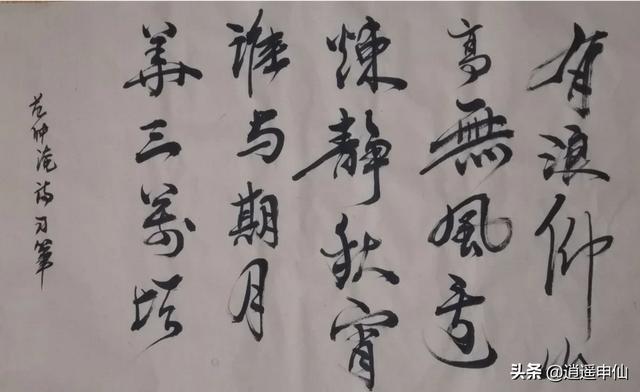 有浪仰山
高無風还
煉靜秋宵
誰与期月
華三萬頃
范仲淹诗习笔
头条 @逍遥申仙